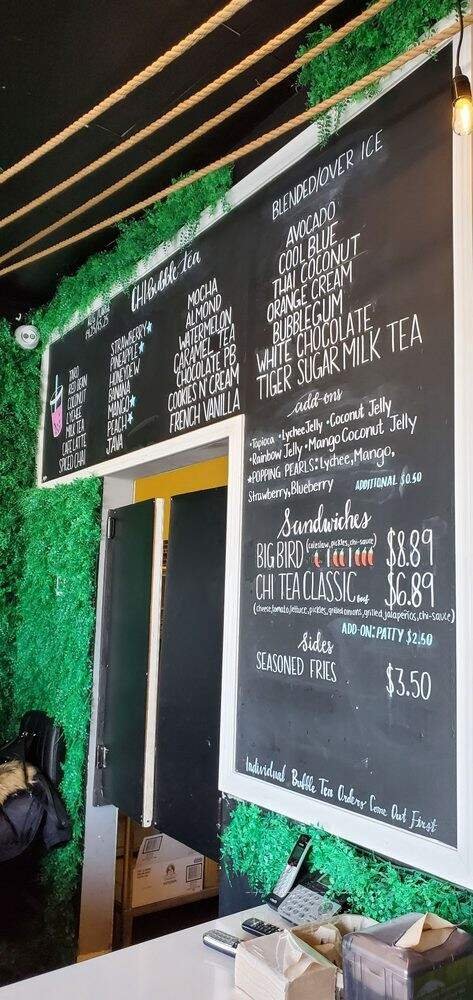 CHI Bubble tea
TARO
RED BEAN
COCONUT
LYCHEE
MILK TEA
CAFE LATTE
SPICED CHAI
STRAWBERRY*
PINEAPPLE*
HONEYDEW
BANANA
MANGO*
PEACH*
JAVA
MOCHA
ALMOND
WATERMELON
CARAMEL TEA
CHOCOLATE PB
COOKIES N' CREAM
FRENCH VANILLA
BLENDED/OVER ICE
AVOCADO
COOL BLUE
THAI COCONUT
ORANGE CREAM
BUBBLEGUM
WHITE CHOCOLATE
TIGER SUGAR MILK TEA
add-ons
•Tapioca •Lychee Jelly •Coconut Jelly
•Rainbow Jelly •Mango Coconut Jelly
•POPPING PEARLS: Lychee, Mango,
Strawberry, Blueberry ADDITIONAL $0.50
Sandwiches
BIG BIRD (coleslaw, pickles, chi-sauce) $8.89
CHI TEA CLASSIC beef $6.89
(cheese, tomato, lettuce, pickles, grilled onions, grilled jalapeños, chi-sauce)
ADD-ON: PATTY $2.50
Sides
SEASONED FRIES $3.50
Individual Bubble Tea Orders Come Out First